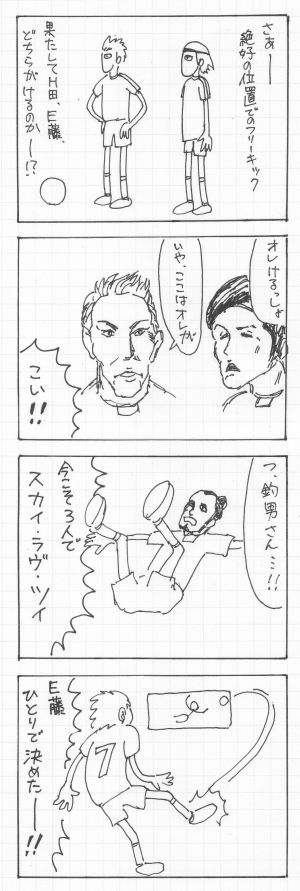 さぁー
絶好の位置でのフリーキック
果たしてH田、E藤、
どちらがけるのかー!?
オレけるっしょ
いや、ここはオレが
こい!!
つ、釣男さん…!!
今こそ3人で
スカイ・ラヴ・ツイ
E藤
ひとりで決めたー!!
7